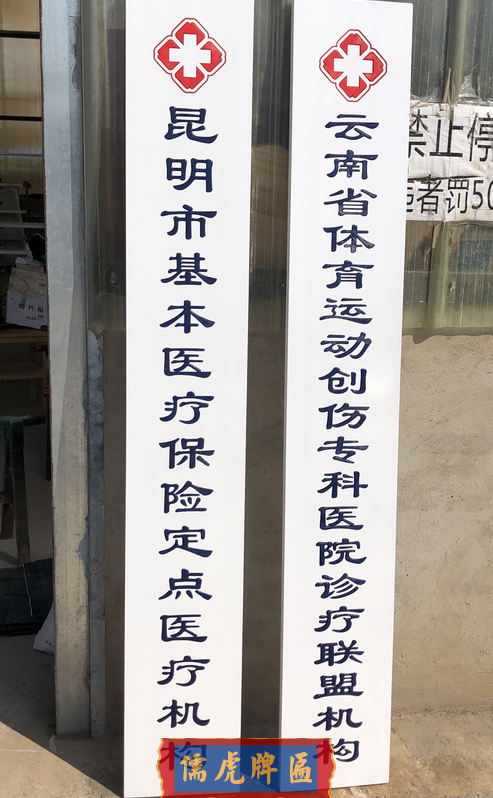 昆明市基本医疗保险定点医疗机构
云南省体育运动创伤专科医院诊疗联盟机构
禁止停
违者罚50
儒虎牌匾